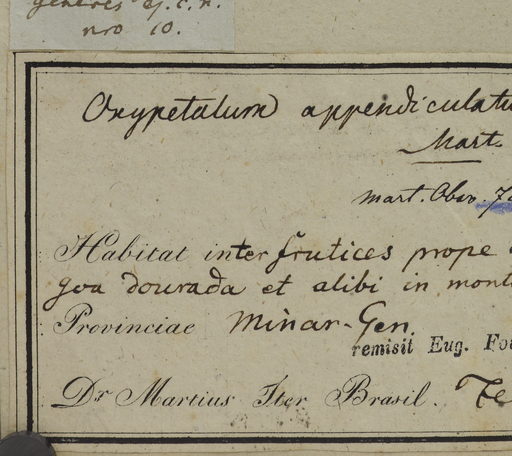 generes ej. c. n.
nro 10.
Oxypetalum appendiculatu
Mart.
mart. Obsv.
Habitat inter frutices prope
goa dourada et alibi in mont
Provinciae Minar-Gen.
remisit Eug. Fou
Dr Martius Iter Brasil.